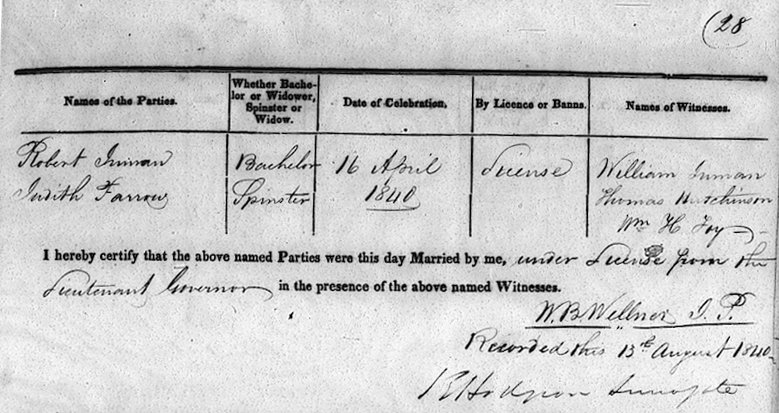 (28
Names of the Parties.
Whether Bache-
lor or Widower,
Spinster or
Widow.
Date of Celebration.
By Licence or Banns.
Names of Witnesses.
Robert Inman
Bachelor
16 April
License
William Inman
Judith Farrow
Spinster
1840
Thomas Hutchinson
Wm H Foy
I hereby certify that the above named Parties were this day Married by me, under License from the
Lieutenant Governor in the presence of the above named Witnesses.
W. B. Wellner J. P.
Recorded this 13th August 1840
R Hodgson Surrogate